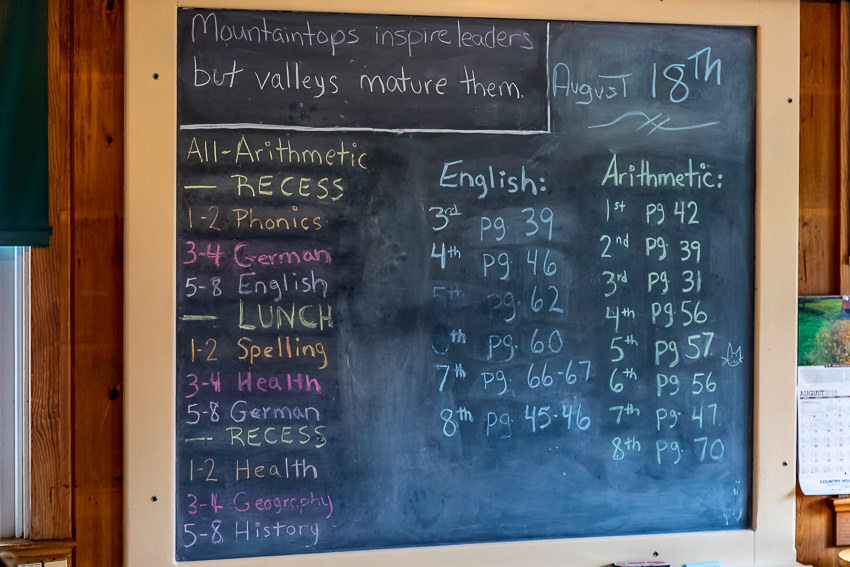 Mountaintops inspire leaders
but valleys mature them.
August 18th
All-Arithmetic
— RECESS
1-2 Phonics
3-4 German
5-8 English
— LUNCH
1-2 Spelling
3-4 Health
5-8 German
— RECESS
1-2 Health
3-4 Geography
5-8 History
English:
3rd pg. 39
4th pg. 46
5th pg. 62
6th pg. 60
7th pg. 66-67
8th pg. 45-46
Arithmetic:
1st pg 42
2nd pg. 39
3rd pg. 31
4th pg. 56
5th pg 57
6th pg. 56
7th pg. 47
8th pg. 70
AUGUST